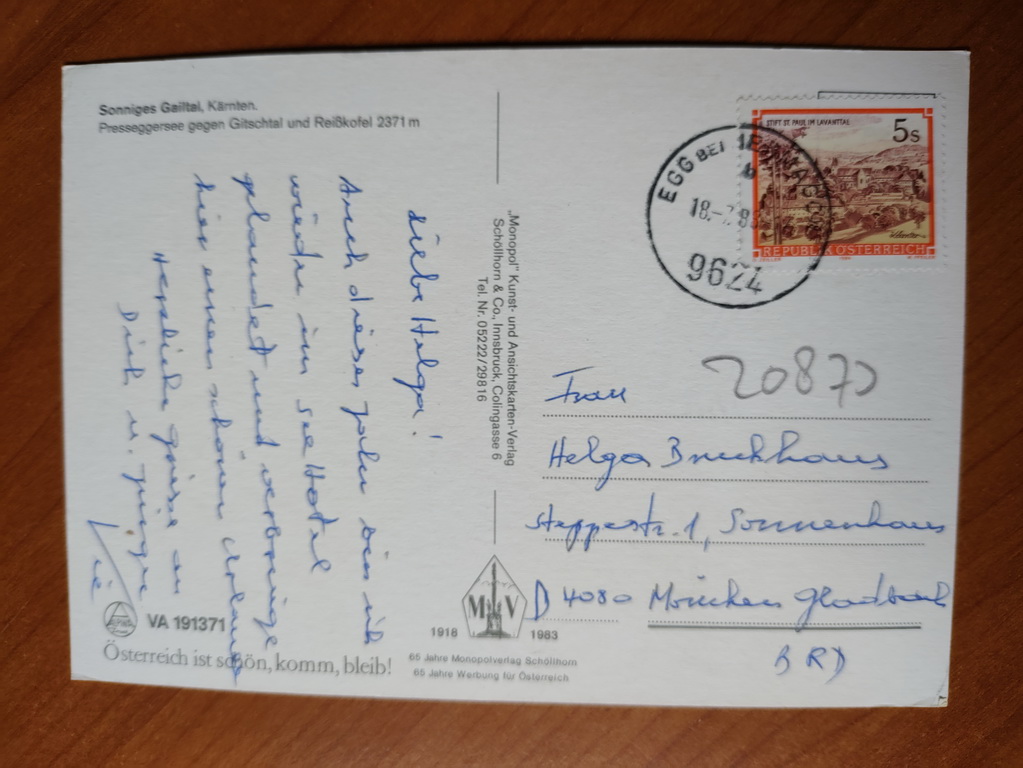 Sonniges Gailtal, Kärnten.
Presseggersee gegen Gitschtal und Reißkofel 2371 m
Liebe Helga!
Auch dieses Jahr bin ich
wieder im See Hotel
gelandet und verbringe
hier einen schönen Urlaub
Herzliche Grüsse an
Dich u.
VA 191371
Österreich ist schön, komm, bleib!
„Monopol" Kunst- und Ansichtskarten-Verlag
Schöllhorn & Co., Innsbruck, Colingasse 6
Tel. Nr. 05222/29816
M V
1918 1983
65 Jahre Monopolverlag Schöllhorn
65 Jahre Werbung für Österreich
STIFT ST. PAUL IM LAVANTTAL
5s
Kärnten
REPUBLIK ÖSTERREICH
EGG BEI
18.-7.8
9624
20870
Frau
Helga Bruckhaus
Steppestr. 1, Sonnenhaus
D 4080 München Gladbach
BRD